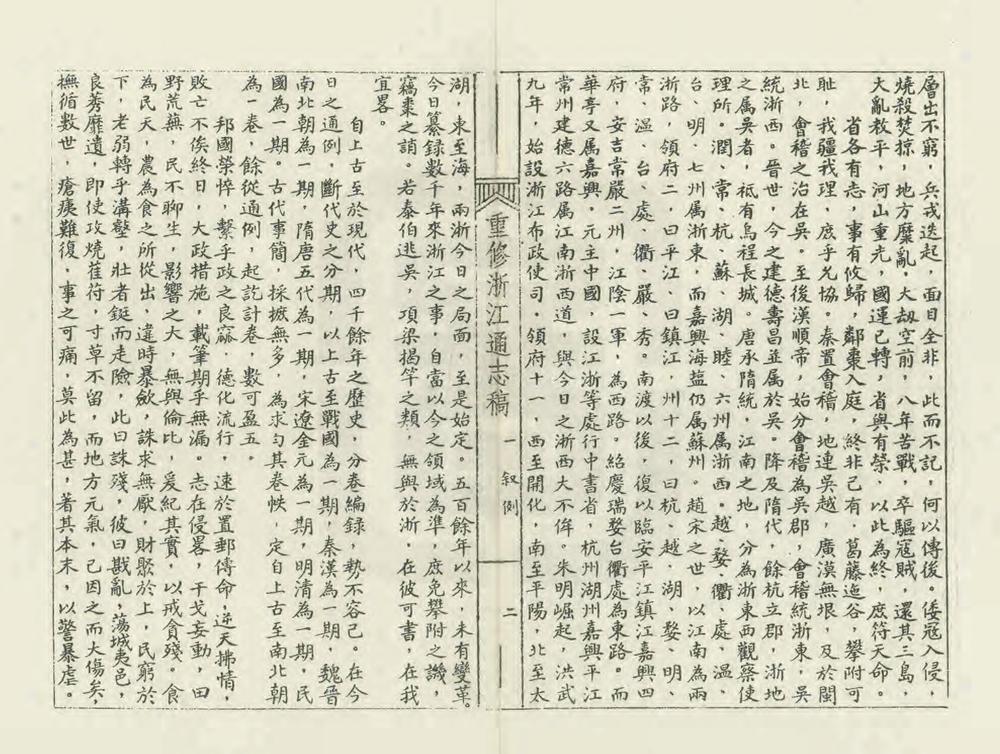 層出不窮，兵戎迭起，面目全非，此而不記，何以傳後。倭寇入侵，
燒殺焚掠，地方糜亂，大劫空前，八年苦戰，卒驅寇賊，還其三島，
大亂敉平，河山重光，國運已轉，省與有榮，以此為終，庶符天命。
省各有志，事有攸歸，鄰棗入庭，終非己有，葛藤迤谷，攀附可
耻，我疆我理，庶乎允協。秦置會稽，地連吳越，廣漠無垠，及於閩
北，會稽之治在吳。至後漢順帝，始分會稽為吳郡，會稽統浙東，吳
統浙西。晉世，今之建德壽昌並屬於吳。降及隋代，餘杭立郡，浙地
之屬吳者，祇有烏程長城。唐承隋統，江南之地，分為浙東西觀察使
理所。潤、常、杭、蘇、湖、睦、六州屬浙西，越、婺、衢、處、溫、
台、明、七州屬浙東，而嘉興海鹽仍屬蘇州。趙宋之世，以江南為兩
浙路，領府二，曰平江、曰鎮江，州十二，曰杭、越、湖、婺、明、
常、溫、台、處、衢、嚴、秀。南渡以後，復以臨安平江鎮江嘉興四
府，安吉常嚴二州，江陰一軍，為西路。紹慶瑞婺台衢處為東路。而
華亭又屬嘉興。元主中國，設江浙等處行中書省，杭州湖州嘉興平江
常州建德六路屬江南浙西道，與今日之浙西大不侔。朱明崛起，洪武
九年，始設浙江布政使司，領府十一，西至開化，南至平陽，北至太
重修浙江通志稿　一　叙例　二
湖，東至海，兩浙今日之局面，至是始定。五百餘年以來，未有變革。
今日纂録數千年來浙江之事，自當以今之領域為準，庶免攀附之譏，
竊棗之誚。若泰伯逃吳，項梁揭竿之類，無與於浙，在彼可書，在我
宜畧。
自上古至於現代，四千餘年之歷史，分卷編録，勢不容已。在今
日之通例，斷代史之分期，以上古至戰國為一期，秦漢為一期，魏晉
南北朝為一期，隋唐五代為一期，宋遼金元為一期，明清為一期，民
國為一期。古代事簡，採摭無多，為求勻其卷帙，定自上古至南北朝
為一卷，餘從通例，起訖計卷，數可盈五。
邦國榮悴，繫乎政之良窳，德化流行，速於置郵傳命，逆天拂情，
敗亡不俟終日，大政措施，載筆期乎無漏。志在侵畧，干戈妄動，田
野荒蕪，民不聊生，影響之大，無與倫比，爰紀其實，以戒貪殘。食
為民天，農為食之所從出，違時暴斂，誅求無厭，財聚於上，民窮於
下，老弱轉乎溝壑，壯者鋌而走險，此曰誅殘，彼曰戡亂，蕩城夷邑，
良莠靡遺，即使攻燒萑苻，寸草不留，而地方元氣，已因之而大傷矣，
撫循數世，瘡痍難復，事之可痛，莫此為甚，著其本末，以警暴虐。